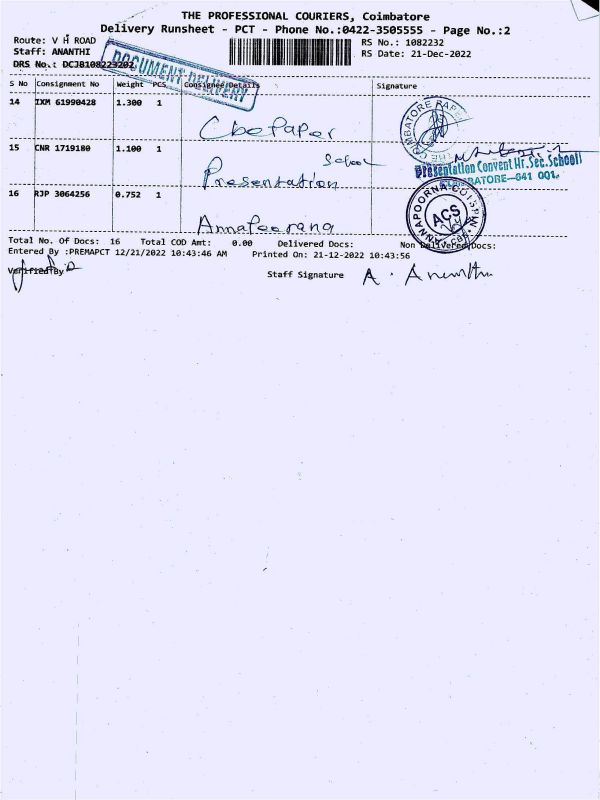 THE PROFESSIONAL COURIERS, Coimbatore
Delivery Runsheet - PCT - Phone No.:0422-3505555 - Page No.:2
Route: V H ROAD
RS No.: 1082232
Staff: ANANTHI
RS Date: 21-Dec-2022
DRS No.: DCJ8108223202
DOCUMENT DELIVERY
S No Consignment No Weight PCS Consignee Details Signature
14 IXM 61990428 1.300 1
Cbe Paper
COIMBATORE PAPER
15 CNR 1719180 1.100 1
School
Presentation
Presentation Convent Hr.Sec.School
COIMBATORE-641 001.
16 RJP 3064256 0.752 1
Annapoorana
ANNAPOORNA
ACS
CBE
Total No. Of Docs: 16 Total COD Amt: 0.00 Delivered Docs: Non Delivered Docs:
Entered By :PREMAPCT 12/21/2022 10:43:46 AM Printed On: 21-12-2022 10:43:56
Verified By
Staff Signature A. Ananthi